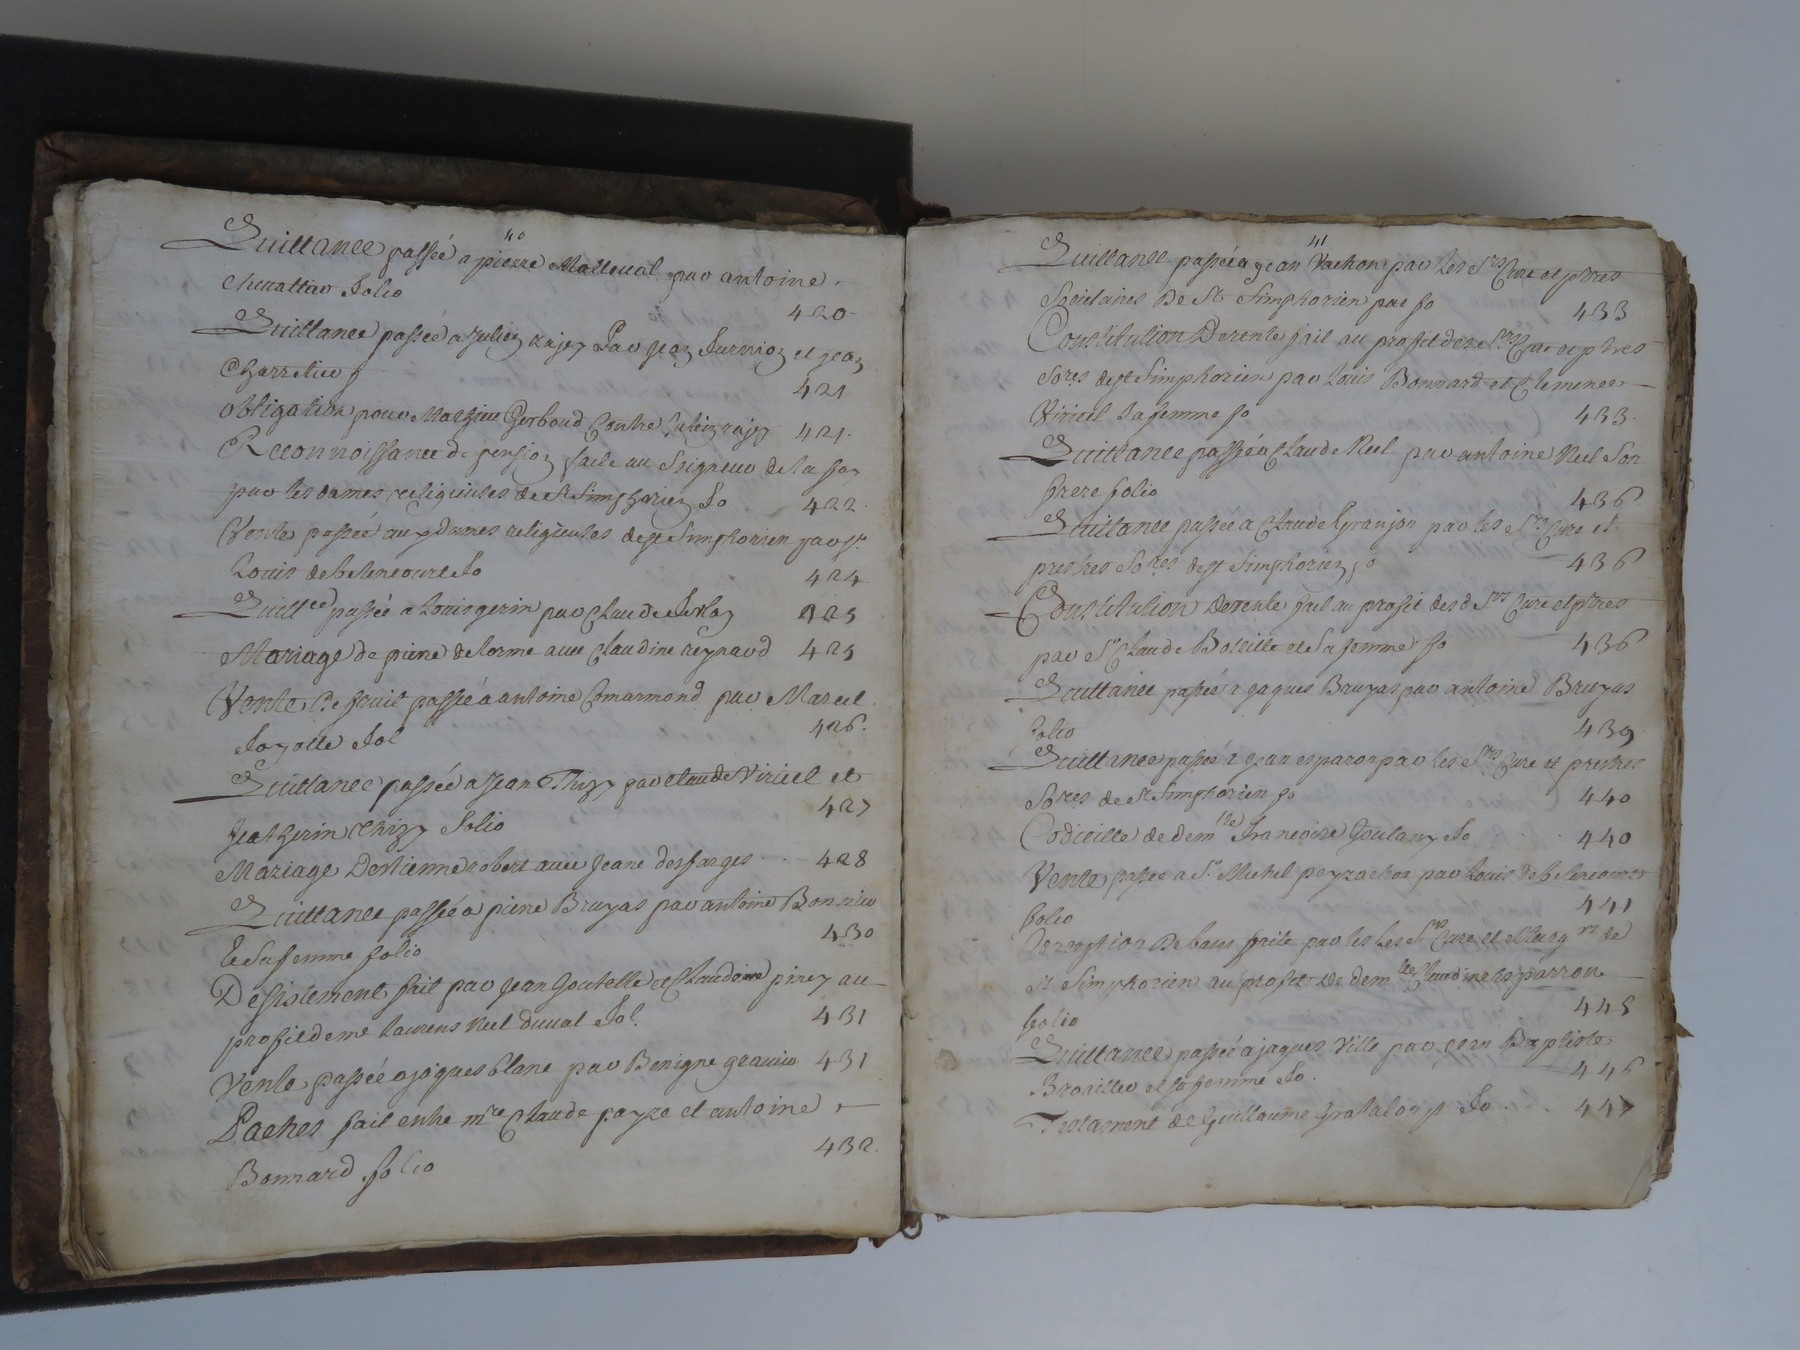 40
Quittance passée a pierre Malleval par antoine
chevattier folio
420
Quittance passée a Julien rajey Par Jean Furnion et jean
Charretier f
421
obligation pour Mathieu Gerboud Contre Julien rajey 421.
Reconnoissance de pension faite au Seigneur de la fay
par les dames religieuses de St Simphorien fo 422
Vente passée aux Dames religieuses de st Simphorien par sr
Louis de belencourt fo 424
Quittce passée a Louis gerin par Claude 425
Mariage de pierre delorme avec Claudine reynaud 425
Vente de fruit passée a antoine Comarmond par Marcel
fayolle fol 426.
Quittance passée a Jean Thizy par claude Viricel et
Catherin thizy folio 427
Mariage Destienne robert avec Jeane desfarges 428
Quittance passée a pierre Bruyas par antoine Bonnier
et Sa femme folio 430
Desistement fait par Jean Goutelle et Claudine piney au
profit de me Laurens Neel duval fol. 431
Vente passée a jaques blanc par Benigne gravier 431
Paches fait entre mre Claude payze et antoine
Bonnard folio 432.
41
Quittance passée a jean Vachon par les Srs Cure et pbres
Societaires De St Simphorien par fo 433
Constitution De rente fait au profit des Srs Cure et pbres
Sores de st Simphorien par Louis Bonnard et Clemence
Viricel sa femme fo 433.
Quittance passée a Claude Neel par antoine Neel Son
frere folio 436
Quittance passée a Claude Granjon par les Srs Cure et
prestres Sores de st Simphorien fo 436
Constitution De rente fait au profit desd Srs Cure et pbres
par Sr Claude et Sa femme fo 436
Quittance passée a jaques Bruyas par antoine Bruyas
folio 439
Quittance passée a jean esparon par les Srs Cure et prestres
Sores de St Simphorien fo 440
Codicille de demlle francoise Goulary fo 440
Vente passée a Sr Michel peyrachon par Louis de belencourt
folio 441
de bans faite par les Srs Cure et de
st Simphorien au profit de demlle Claudine esparron
folio 445
Quittance passée a jaques Ville par jean Baptiste
et sa femme fo. 446
Testament de Guillaume Grataloup fo 447